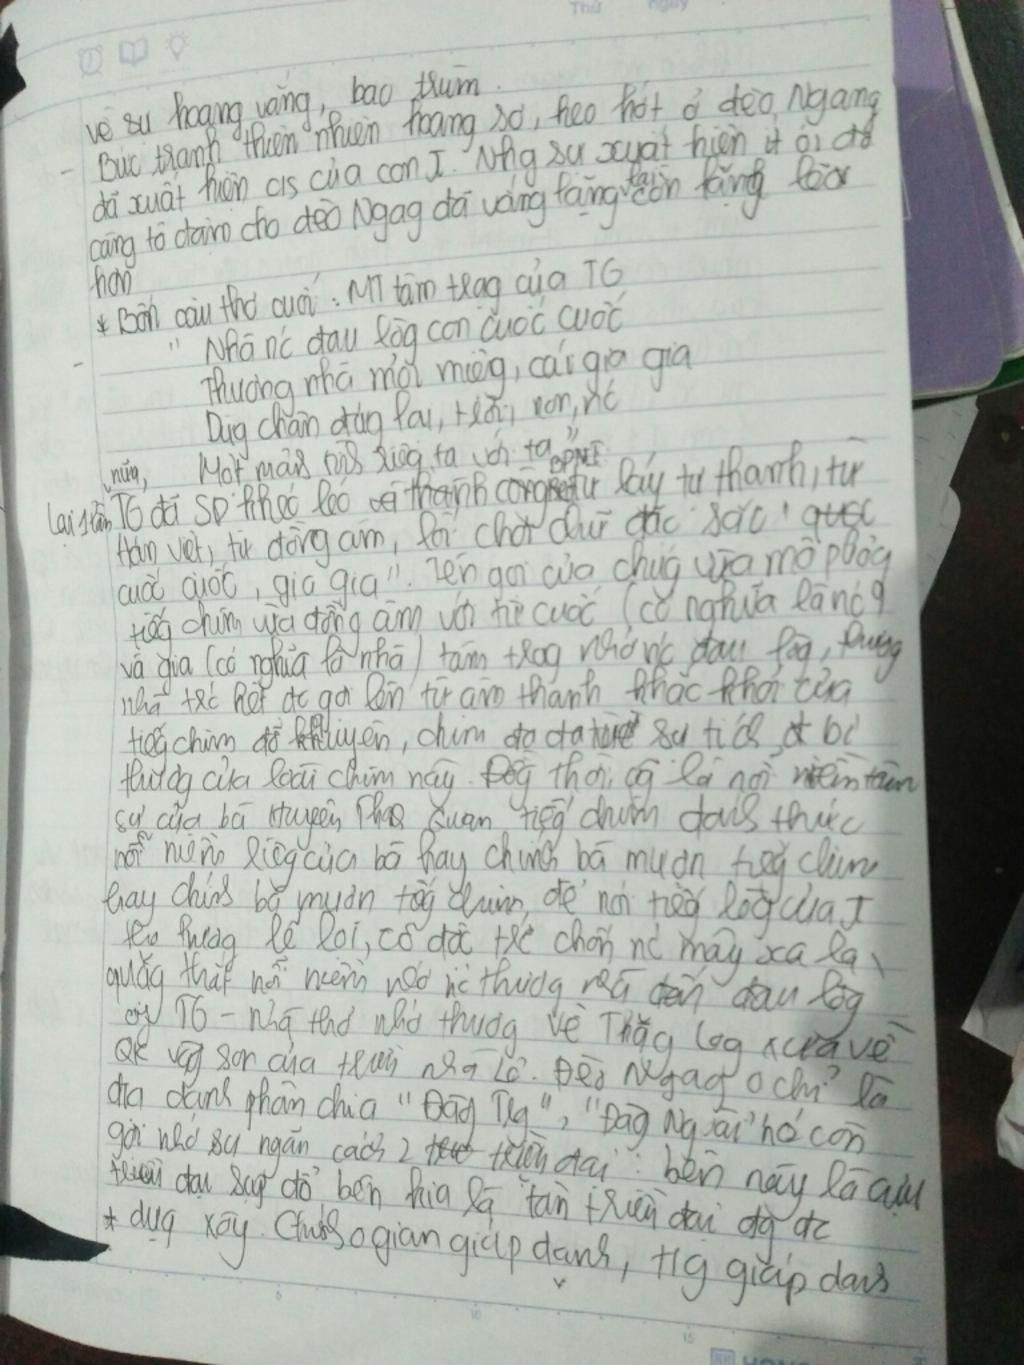 Thứ ngày
vẻ sự hoang vắng, bao trùm.
- Bức tranh thiên nhiên hoang sơ, heo hút ở đèo Ngang
đã xuất hiện c/s của con I. Nhg sự xuất hiện ít ỏi đó
càng tô đậm cho đèo Ngag đã vắng lặng lại còn lặng lẽo
hơn
* Bốn câu thơ cuối: MT tâm trạg của TG
- " Nhớ nc đau lòg con cuốc cuốc
Thương nhà mỏi miệg, cái gia gia
Dừg chân đứg lại, trời, non, nc
Một mảnh tìh riêg, ta với ta"
nữa, BPNT
Lại 1 lần TG đã SD khéo léo thành công từ láy tự thanh, từ
Hán việt, từ đồng âm, lối chơi chữ đặc sắc " quốc
cuốc cuốc, gia gia". Tên gọi của chúg vừa mô phỏg
tiếg chim vừa đồg âm với từ cuốc (có nghĩa là nc)
và gia (có nghĩa là nhà) tâm trạg nhớ nc đau lòg, thươg
nhà trc hết đc gợi lên từ âm thanh khắc khoải của
tiếg chim đỗ quyên, chim đa đa sự tích bi
thươg của loài chim này. Đồg thời, cg là nỗi niềm tâm
sự của bà Huyện Thah Quan tiếg chim đánh thức
nỗi niềm riêg của bà hay chính bà mượn tiếg chim
hay chíh bà mượn tiếg chim, để nói tiếg lòg của I
hươg lẻ loi, cô độc trc chốn nc mây xa lạ,
quặg thắt nỗi niềm nhớ nc thươg nhà đến đau lòg
TG - nhà thơ nhớ thươg về Thăg Log xưa về
QK vàg son của triều nhà Lê. Đèo Ngag o chỉ là
địa danh phân chia "Đàg Tlg", "Đàg Ngoài" nó còn
gợi nhớ sự ngăn cách 2 triều đại: bên này là cựu
triều đại sụp đổ bên kia là tân triều đại đg đc
* dựg xây. Chíh o gian giáp danh, t/g giáp danh
5 10 15